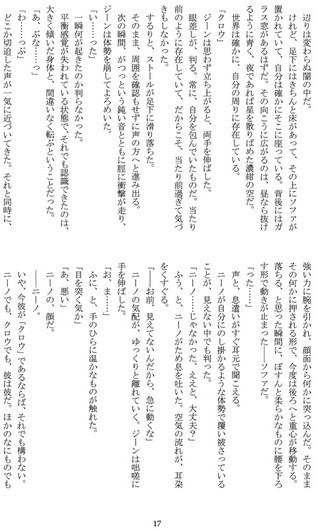 辺りは変わらぬ闇の中だ。
けれど、足下にはきちんと床があって、その上にソファが
置かれていて、自分は確かにそこに座っている。背後にはガ
ラス窓があるはずだ。その向こうに広がるのは、昼なら抜け
るように青く、夜であれば星を散りばめた濃紺の空だ。
世界は確かに、自分の周りに存在している。
『クロウ』
ジーンは思わず立ち上がると、両手を伸ばした。
眼差しが、判る。常に、自分を包んでいたものだ。当たり
前のように存在していて、だからこそ、当たり前過ぎて気づ
きもしなかった。
するりと、ストールが足下に滑り落ちた。
そのまま、周囲を確認もせずに声の方へと進み出る。
次の瞬間、がつっという鈍い音とともに脛に衝撃が走り、
ジーンは体勢を崩してよろめいた。
「い……った」
一瞬何が起きたのか判らなかった。
平衡感覚が失われている状態で、それでも認識できたのは、
大きく傾いだ身体と、間違いなく転ぶということだった。
「あ、ぶな……っ」
「わ……っぷ」
どこか切迫した声が一気に近づいてきた。それと同時に、
強い力に腕を引かれ、顔面から何かに突っ込んだ。そのまま
その何かに押される形で、今度は後ろへと重心が移動する。
落ちる、と思った瞬間に、ぽすんと柔らかなものに腰を下ろ
す形で動きが止まった――ソファだ。
「った……」
声と、息遣いがすぐ耳元で聞こえる。
ニーノが自分にのし掛かるような体勢で覆い被さっている
ことが、見えない中でも判った。
「ニーノ……じゃなかった、ええと、大丈夫?」
ふう、と、ニーノがため息を吐いた。空気の流れが、耳朶
をくすぐる。
「――お前、見えてないんだから、急に動くな」
ニーノの気配が、ゆっくりと離れていく。ジーンは咄嗟に
手を伸ばした。
「お、ま……」
ふに、と、手のひらに温かなものが触れた。
「目を突く気か」
「あ、悪い」
ニーノの、顔だ。
――ニーノ。
いや、今彼が「クロウ」であるならば、それでも構わない。
ニーノでも、クロウでも、彼は彼だ。ほかのなにものでも
17